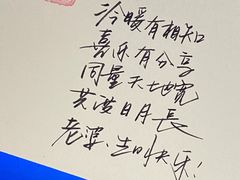 冷暖有相知
喜乐有分享
同量天地宽
共渡日月長
老婆、生日快乐!